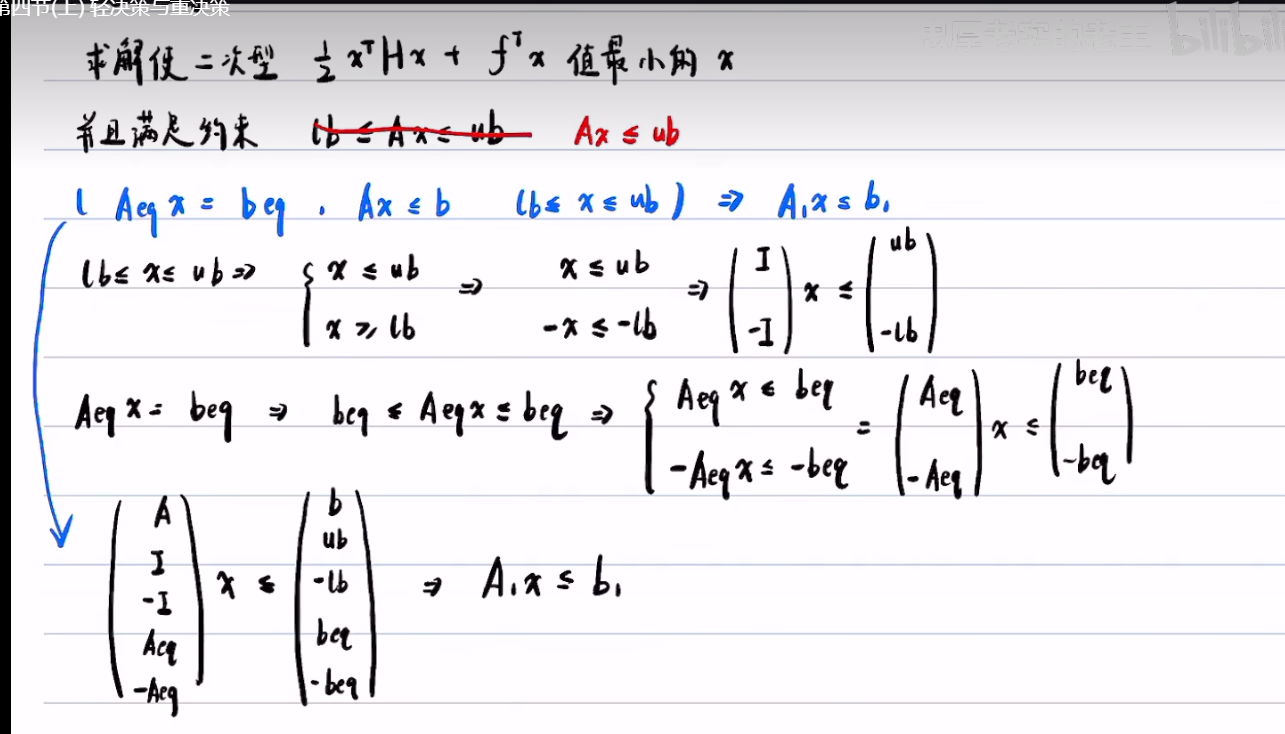 第四节(上) 轻决策与重决策
bilibili
求解使二次型 ½ xᵀHx + fᵀx 值最小的 x
并且满足约束 lb ≤ Ax ≤ ub Ax ≤ ub
( Aeq x = beq , Ax ≤ b (lb ≤ x ≤ ub) ⇒ A₁x ≤ b₁
lb ≤ x ≤ ub ⇒ { x ≤ ub ⇒ x ≤ ub ⇒ ( I ) x ≤ ( ub )
x ≥ lb -x ≤ -lb ( -I ) ( -lb )
Aeq x = beq ⇒ beq ≤ Aeq x ≤ beq ⇒ { Aeq x ≤ beq = ( Aeq ) x ≤ ( beq )
-Aeq x ≤ -beq ( -Aeq ) ( -beq )
A b
I ub
-I x ≤ -lb ⇒ A₁x ≤ b₁
Aeq beq
-Aeq -beq